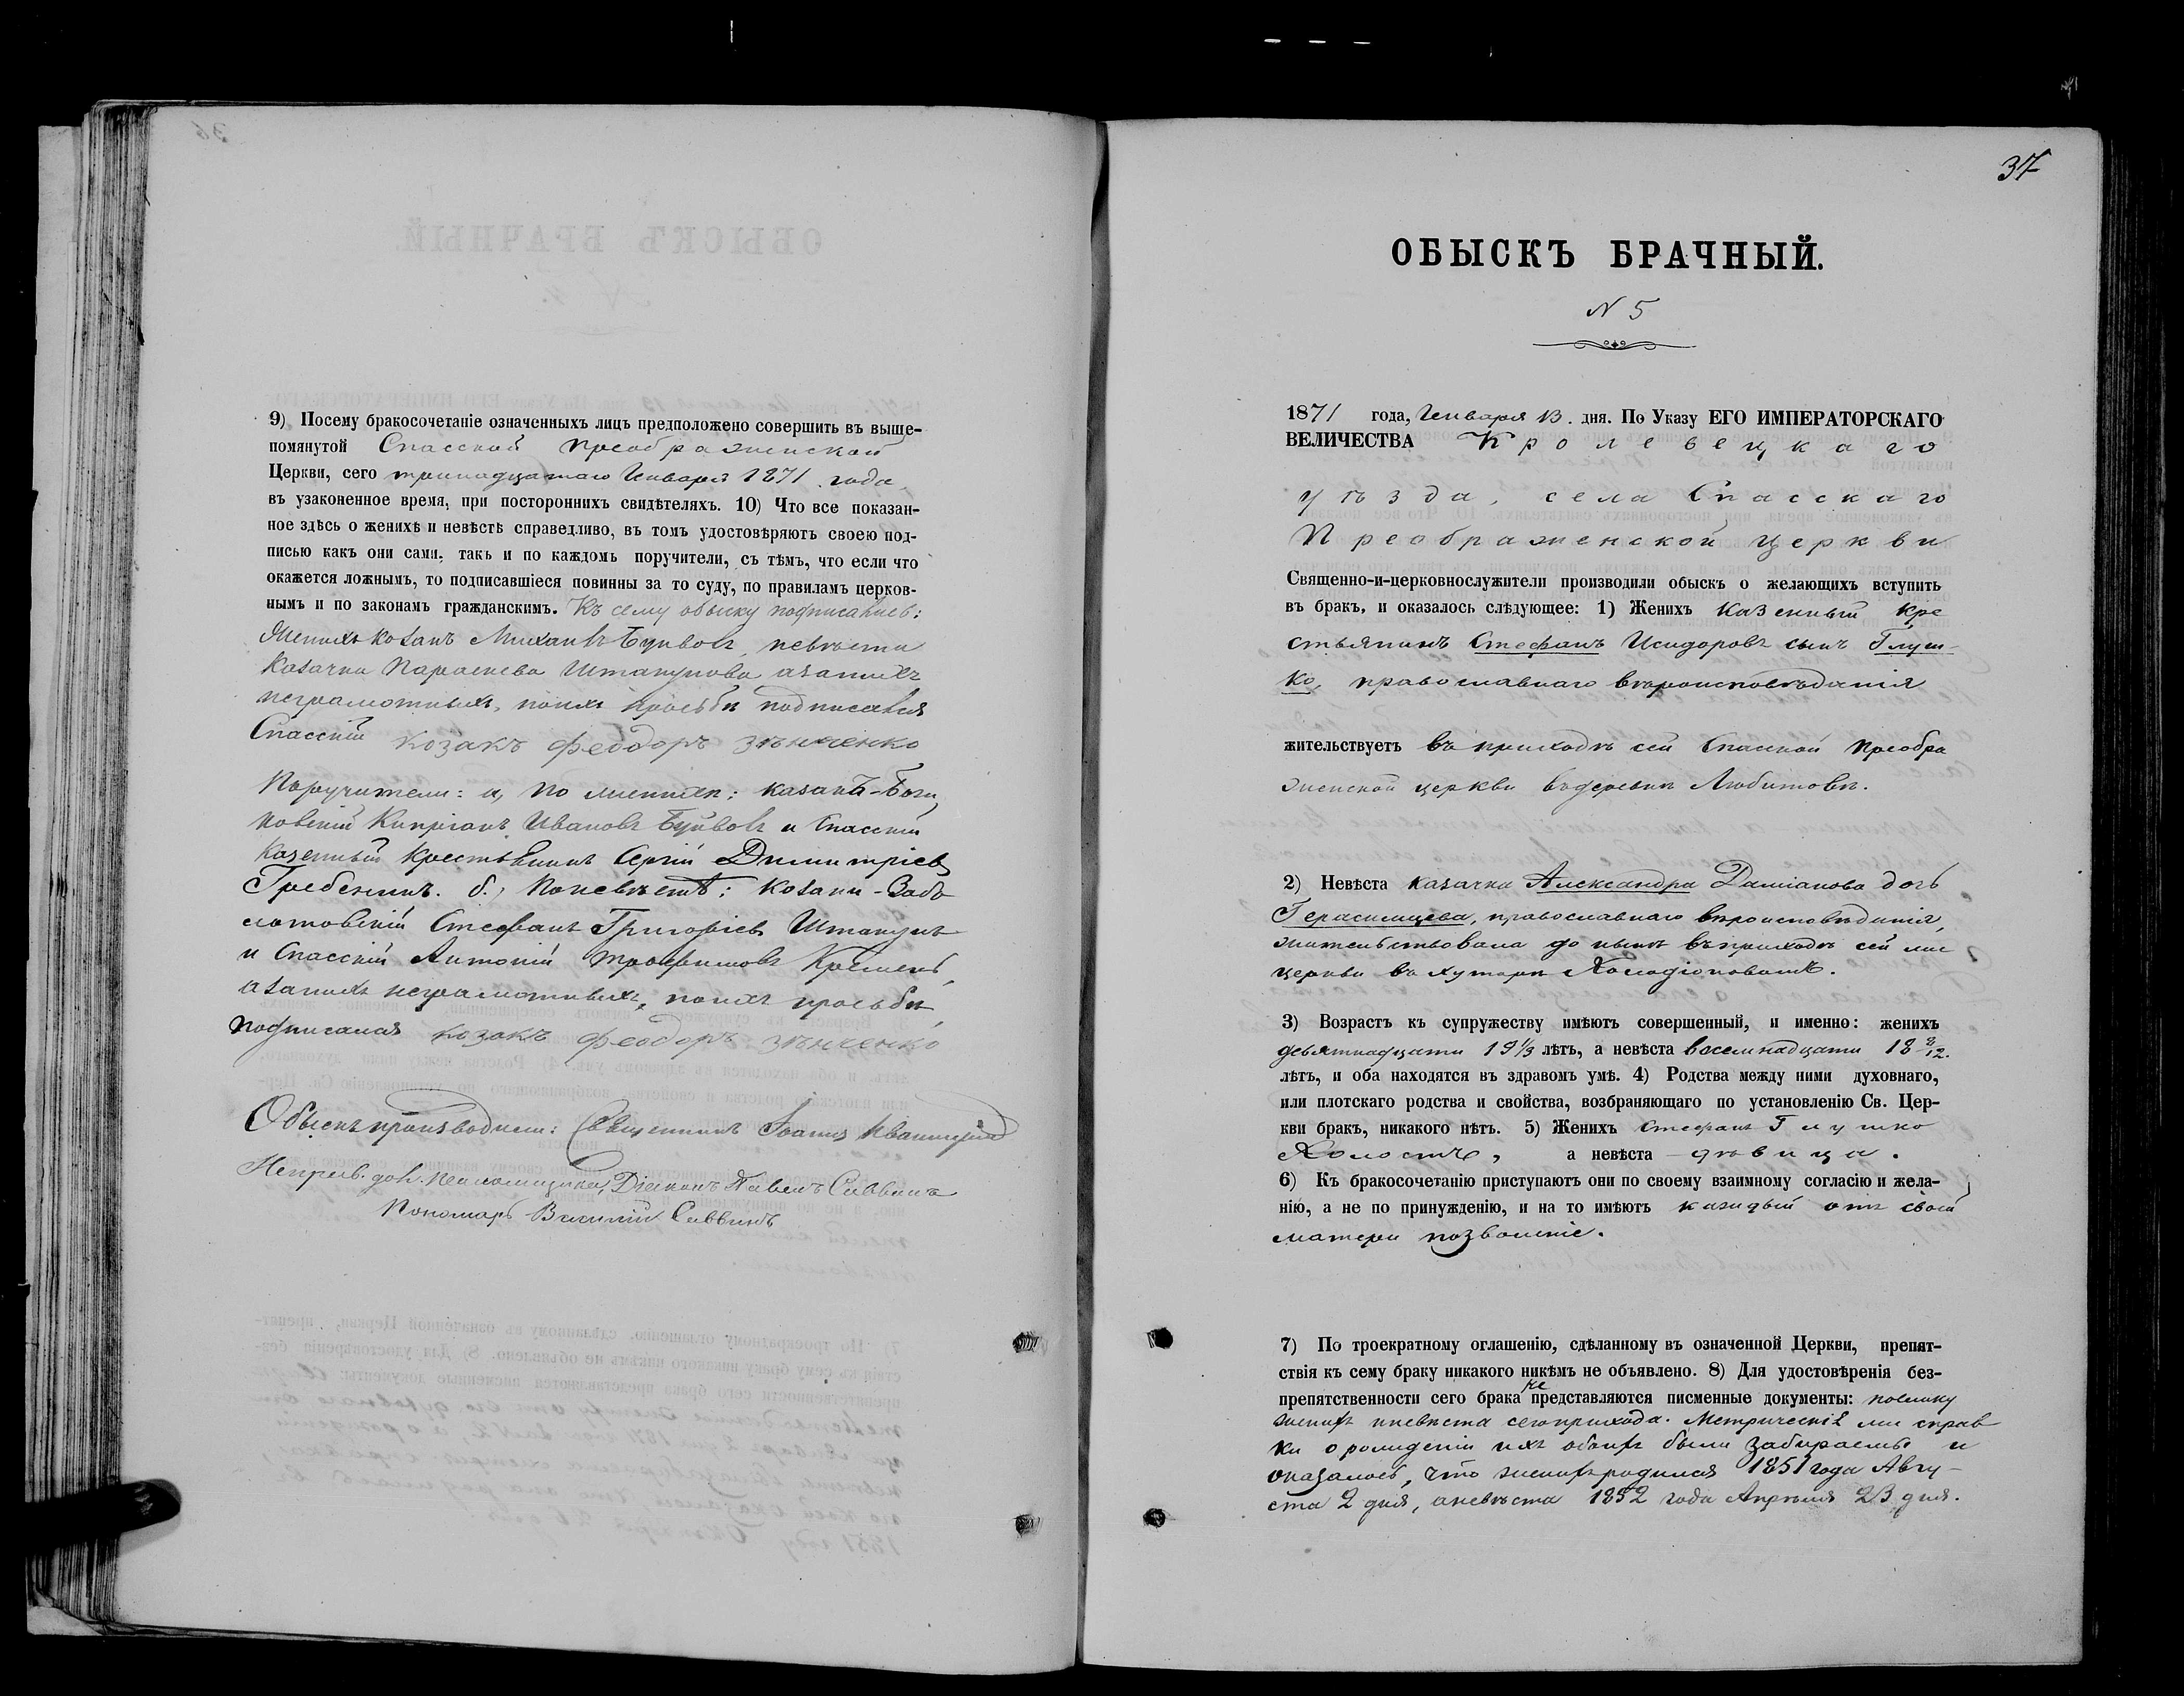 9) Посему бракосочетаніе означенныхъ лицъ предположено совершить въ выше-
помянутой Спасской Преображенской
Церкви, сего тринадцатаго Января 1871 года,
въ узаконенное время, при постороннихъ свидѣтеляхъ. 10) Что все показан-
ное здѣсь о женихѣ и невѣстѣ справедливо, въ томъ удостовѣряютъ своею под-
писью какъ они сами, такъ и по каждомъ поручители, съ тѣмъ, что если что
окажется ложнымъ, то подписавшіеся повинны за то суду, по правиламъ церков-
нымъ и по законамъ гражданскимъ. Къ сему обыску подписались:
Женихъ козакъ Михаилъ Буйволъ, невѣста
козачка Параскева Штакунова азанихъ
неграмотныхъ, поихъ просьбѣ подписался
Спасскій козакъ Феодоръ Зѣнченко
Поручители: а, по женихѣ: казакъ
Кипріанъ Ивановъ Буйволъ и Спасскій
Казенный Крестьянинъ Сергій Димитріевъ
Гребеникъ. б, Поневѣстѣ: козаки -
Стефанъ Григоріевъ Штакунъ
и Спасскій Антоній Трофимовъ Кремень,
азанихъ неграмотныхъ, поихъ просьбѣ
подписался козакъ Феодоръ Зѣнченко
Обыскъ производили: Священникъ Іоаннъ
Діаконъ Павелъ Саввинъ
Пономарь Василій Саввинъ
37
ОБЫСКЪ БРАЧНЫЙ.
N 5
1871 года, Января 13. дня. По Указу ЕГО ИМПЕРАТОРСКАГО
ВЕЛИЧЕСТВА Кролевецкаго
уѣзда, села Спасскаго
Преображенской церкви
Священно-и-церковнослужители производили обыскъ о желающихъ вступить
въ бракъ, и оказалось слѣдующее: 1) Женихъ Казенный кре
стьянинъ Стефанъ Исидоровъ сынъ Глуш-
ко, православнаго вѣроисповѣданія
жительствуетъ въ приходѣ сей Спасской Преобра
женской церкви въдеревнѣ Любитовѣ.
2) Невѣста казачка Александра Даміанова дочь
Герасимцева, православнаго вѣроисповѣданія,
жительствовала до нынѣ въприходѣ сей же
церкви въ хуторѣ
3) Возрастъ къ супружеству имѣютъ совершенный, и именно: женихъ
девятнадцати 19 1/3 лѣтъ, а невѣста восемнадцати 18 8/12.
лѣтъ, и оба находятся въ здравомъ умѣ. 4) Родства между ними духовнаго,
или плотскаго родства и свойства, возбраняющаго по установленію Св. Цер-
кви бракъ, никакого нѣтъ. 5) Женихъ Стефанъ Глушко
Холостъ, а невѣста - дѣвица.
6) Къ бракосочетанію приступаютъ они по своему взаимному согласію и жела-
нію, а не по принужденію, и на то имѣютъ каждый отъ своей
матери позволеніе.
7) По троекратному оглашенію, сдѣланному въ означенной Церкви, препят-
ствія къ сему браку никакого никѣмъ не объявлено. 8) Для удостовѣренія без-
препятственности сего брака не представляются писменные документы: поелику
женихъ иневѣста сегоприхода. Метрическія же справ
ки о рожденіи ихъ обоихъ были забираемы и
оказалось, что женихъродился 1851 года Авгу-
ста 2 дня, аневѣста 1852 года Апрѣля 23 дня.